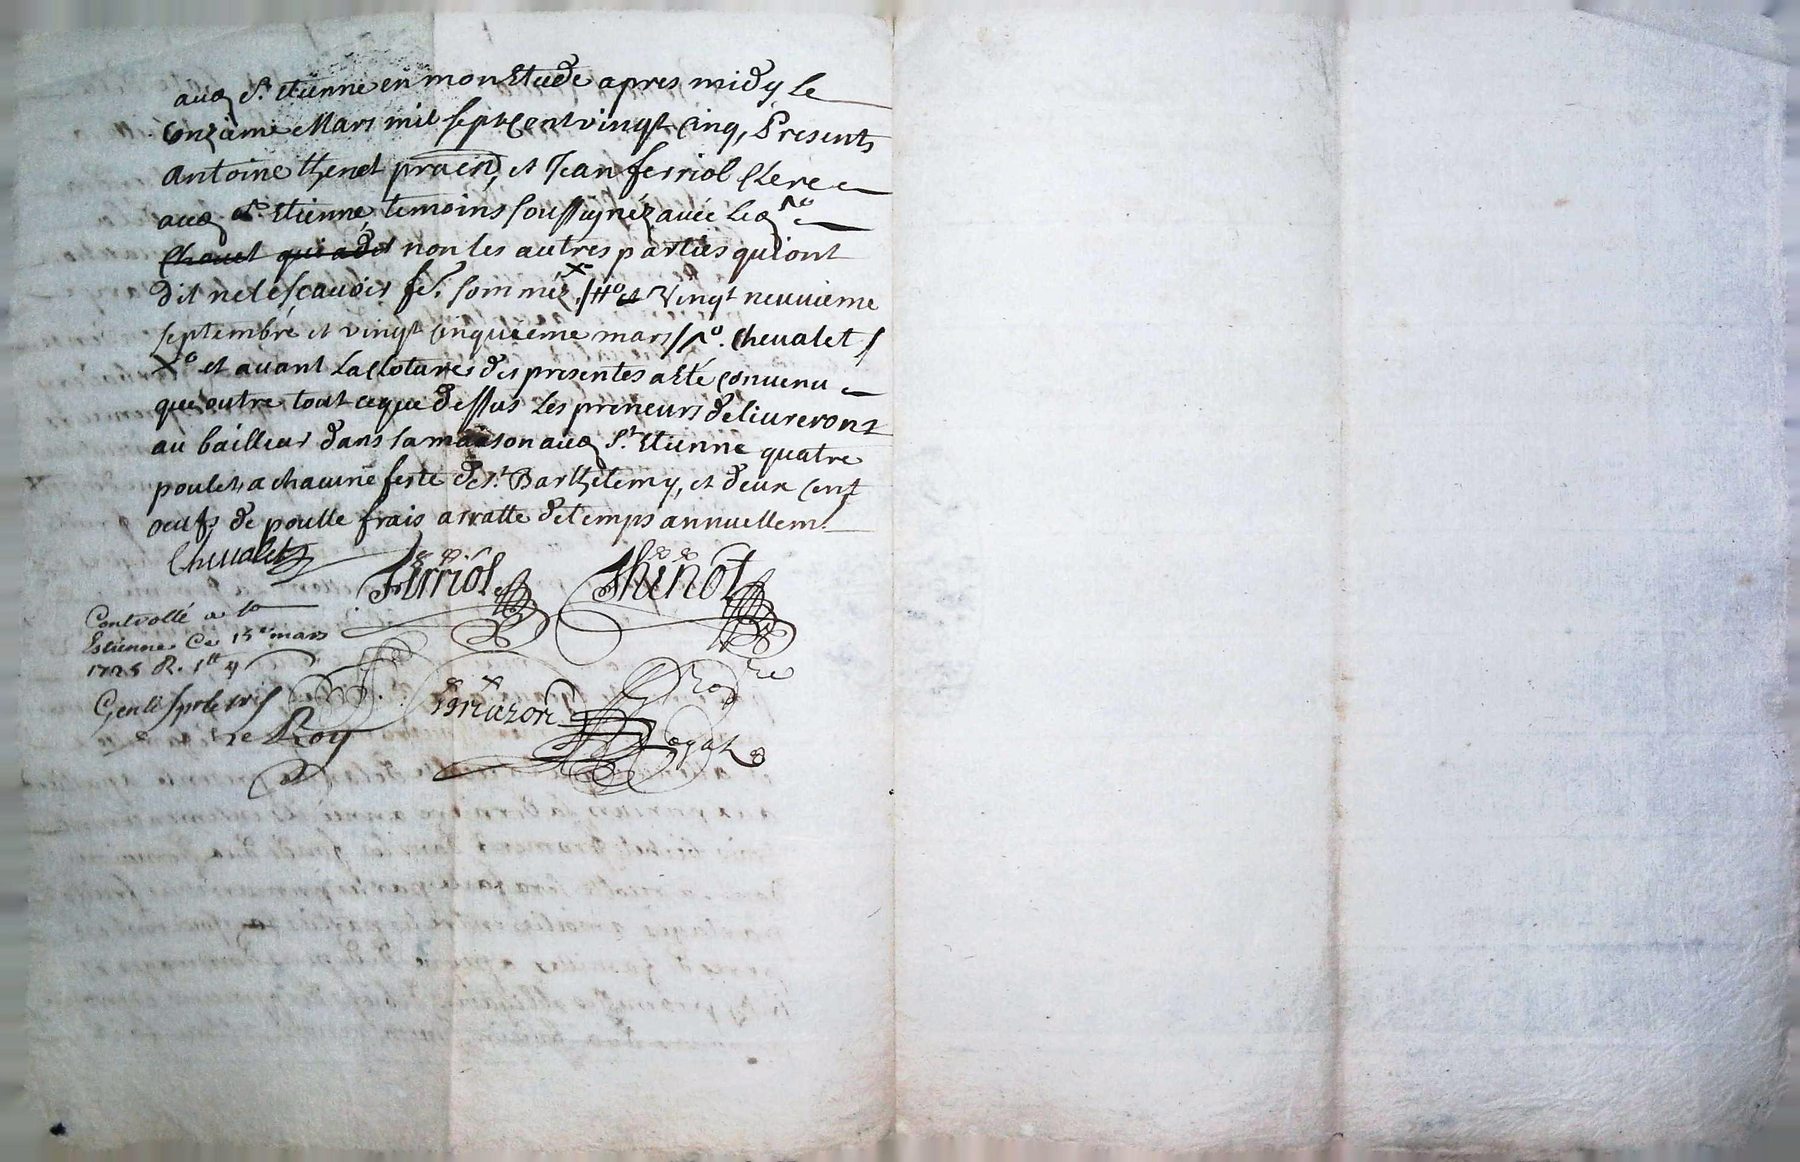 aud St. Etienne en mon Etude apres midy Le
onzieme Mars mil sept Cent vingt Cinq, Presents
Antoine thenot praen, et Jean ferriol Clerc
aud St. Etienne temoins soussignéz avec Led
Chovet qui a dit non les autres parties qui ont
dit ne le scavoir fe. sommez et Vingt neuvieme
septembre et vingt cinquieme mars Chevalet
Xo et avant La Cloture des presentes a Eté Convenu
que outre tout ce que dessus Les preneurs delivreront
au bailleur dans sa maison aud St. Etienne quatre
poulets a chacune feste de St. Barthelemy, et deux Cent
oeufs de poulle frais a ratte de temps annuellemt.
Chevalet Ferriol Thenot
Controllé a St
Estienne Ce 15e mars
1725 R.
Le Roy